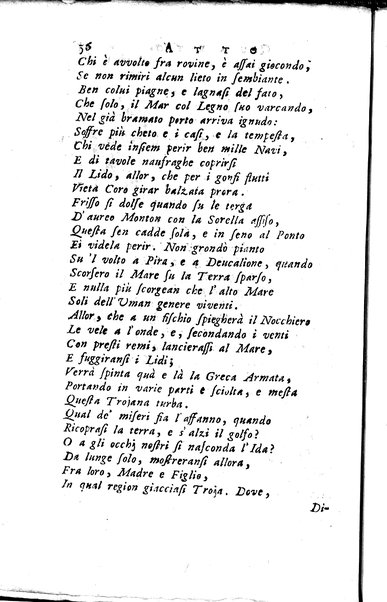 36 ATTO
Chi è avvolto fra rovine, è assai giocondo;
Se non rimiri alcun lieto in sembiante.
Ben colui piagne, e lagnasi del fato,
Che solo, il Mar col Legno suo varcando,
Nel già bramato porto arriva ignudo:
Soffre più cheto e i casi, e la tempesta,
Chi vede insiem perir ben mille Navi,
E di tavole naufraghe coprirsi
Il Lido, allor, che per i gonfi flutti
Vieta Coro girar balzata prora.
Frisso si dolse quando su le terga
D'aureo Monton con la Sorella assiso,
Questa sen cadde sola, e in seno al Ponto
Ei videla perir. Non grondò pianto
Su 'l volto a Pira, e a Deucalione, quando
Scorsero il Mare su la Terra sparso,
E nulla più scorgean che l'alto Mare
Soli dell'Uman genere viventi.
Allor, che a un fischio spiegherà il Nocchiero
Le vele a l'onde, e, secondando i venti
Con presti remi, lancierassi al Mare,
E fuggiransi i Lidi;
Verrà spinta quà e là la Greca Armata,
Portando in varie parti e sciolta, e mesta
Questa Trojana turba.
Qual de' miseri fia l'affanno, quando
Ricoprasi la terra, e s'alzi il golfo?
O a gli occhj nostri si nasconda l'Ida?
Da lunge solo, mostreransi allora,
Fra loro, Madre e Figlio,
In qual region giacciasi Troja. Dove,
Di-